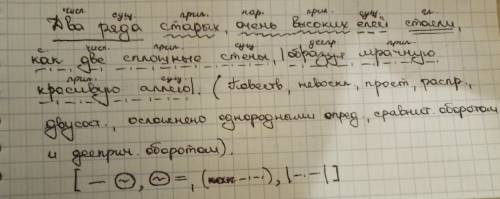 числ. сущ. прил. нар. прил. сущ. гл.
Два ряда старых, очень высоких елей стояли,
с. числ. прил. сущ. деепр. прил.
как две сплошные стены, |образуя мрачную
прил. сущ.
красивую аллею|. (Повеств., невоскл., прост., распр.,
двусост., осложнено однородными опред., сравнит. оборотом
и дееприч. оборотом).
[— ~, ~ =, (как -·-·), |-·-|]